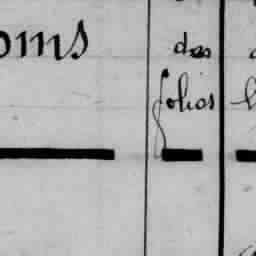 oms
des
folios